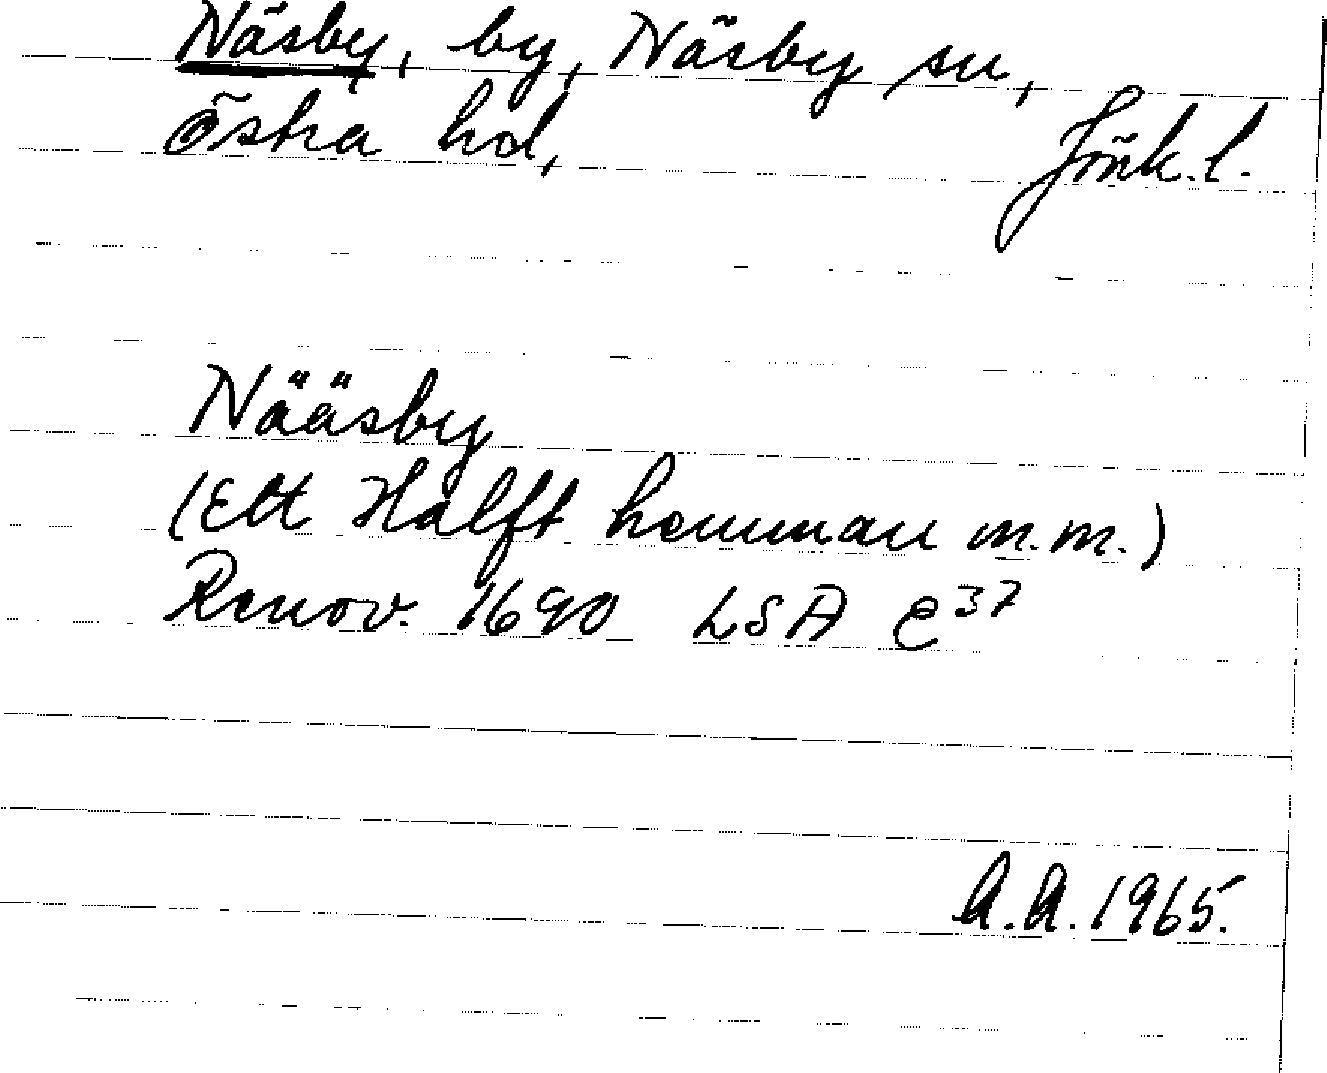 Näsby, by, Näsby sn,
Östra hd, Jönk. l.
Nääsby
(Ett Halft hemman m.m.)
Renov. 1690 LSA E37
A.A. 1965.